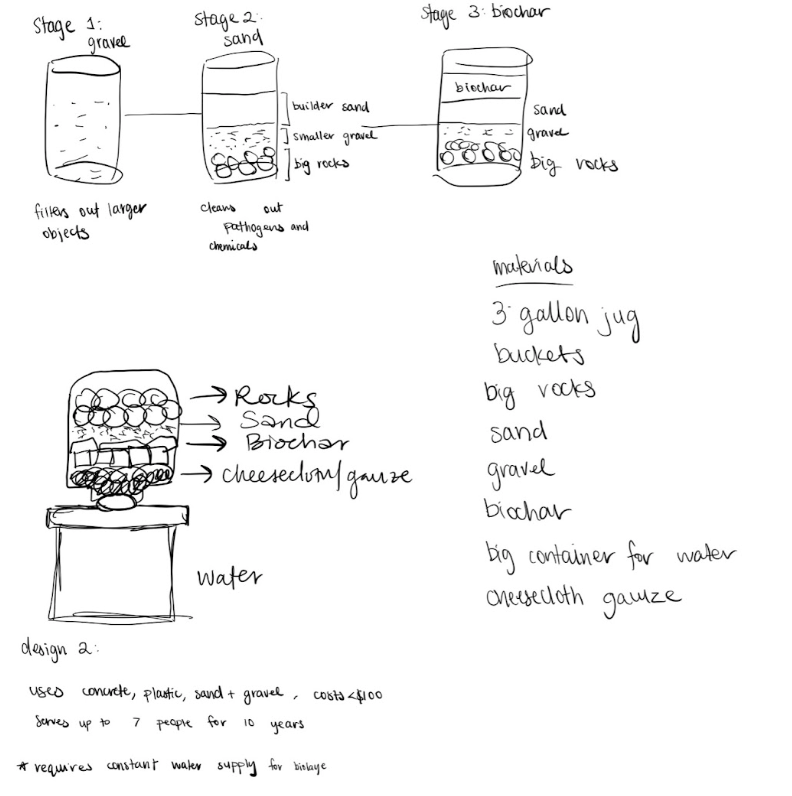 Stage 1:
gravel
Stage 2:
sand
Stage 3: biochar
builder sand
smaller gravel
big rocks
biochar
sand
gravel
big rocks
filters out larger
objects
cleans out
pathogens and
chemicals
materials
3-gallon jug
buckets
big rocks
sand
gravel
biochar
big container for water
cheesecloth gauze
Rocks
Sand
Biochar
cheesecloth/gauze
water
design 2:
uses concrete, plastic, sand + gravel, costs <$100
serves up to 7 people for 10 years
* requires constant water supply for